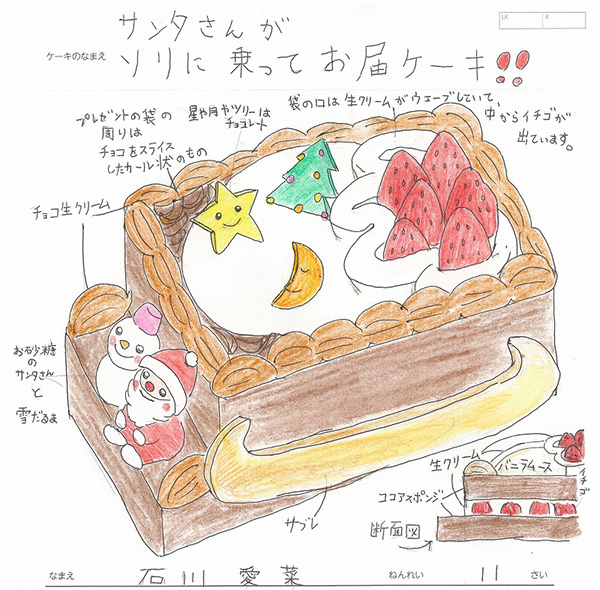 サンタさんが
ケーキのなまえ ソリに乗ってお届ケーキ!!
プレゼントの袋の
周りは
チョコをスライス
したカール状のもの
星や月やツリーは
チョコレート
袋の口は生クリームがウェーブしていて、
中からイチゴが
出ています。
チョコ生クリーム
お砂糖
の
サンタさん
と
雪だるま
サブレ
生クリーム
バニラムース
イチゴ
ココアスポンジ
断面図
なまえ 石川 愛菜 ねんれい 11 さい